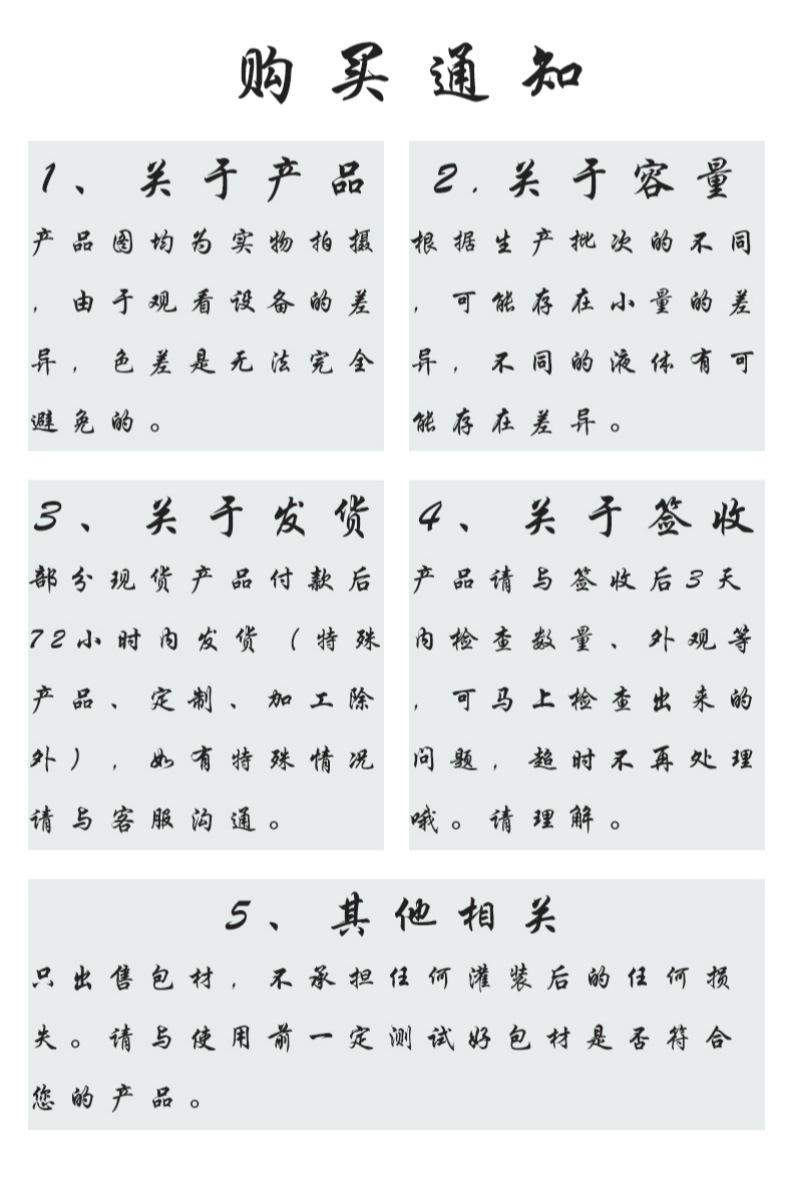 购买通知
1、关于产品
产品图均为实物拍摄
，由于观看设备的差
异，色差是无法完全
避免的。
2.关于容量
根据生产批次的不同
，可能存在小量的差
异，不同的液体有可
能存在差异。
3、关于发货
部分现货产品付款后
72小时内发货（特殊
产品、定制、加工除
外），如有特殊情况
请与客服沟通。
4、关于签收
产品请与签收后3天
内检查数量、外观等
，可马上检查出来的
问题，超时不再处理
哦。请理解。
5、其他相关
只出售包材，不承担任何灌装后的任何损
失。请与使用前一定测试好包材是否符合
您的产品。